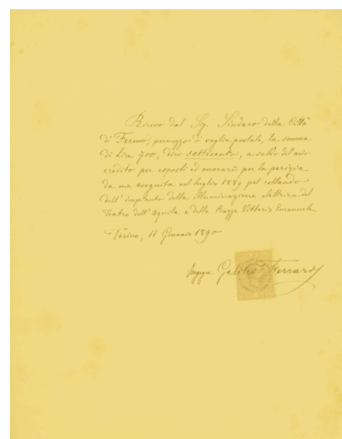 Ricevo dal Sig. Sindaco della Città
di Fermo, a mezzo di vaglia postale, la somma
di Lire 700, dico settecento, a saldo del mio
credito per esposti ed onorari per la perizia
da me eseguita nel luglio 1889 pel collaudo
dell'impianto della Illuminazione elettrica del
Teatro dell'Aquila e della Piazza Vittorio Emanuele.
Torino, 11 Gennaio 1890
Ingegn. Galileo Ferraris